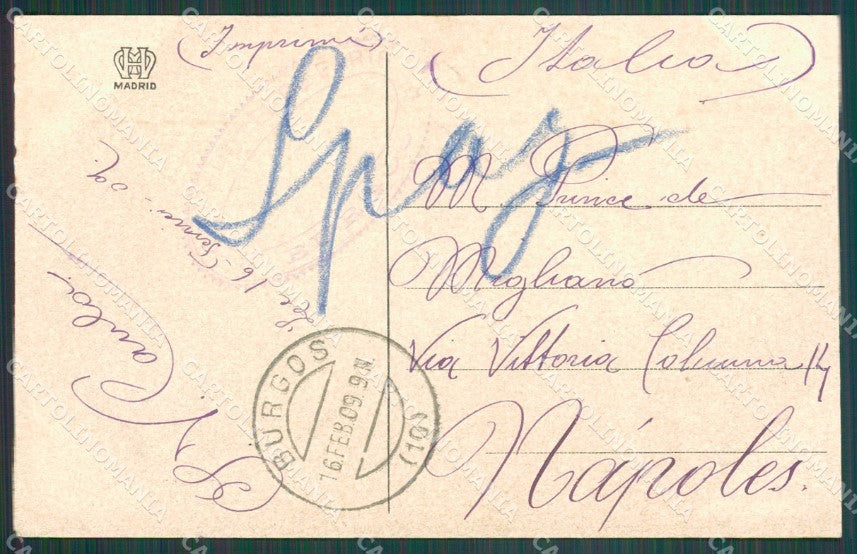 MADRID
(Imprimé)
(Italia)
M. Prince de
Migliano
Via Vittoria Colonna 14
Nápoles.
Le 16
09.
BURGOS
16.FEB.09.9.N.
(10)
CARTOLINOMANIA